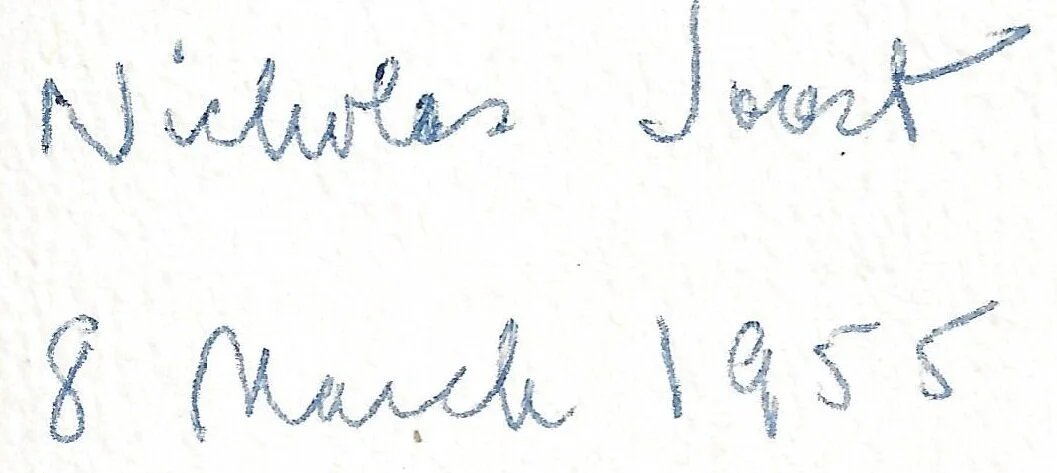 Nicholas Joost
8 March 1955